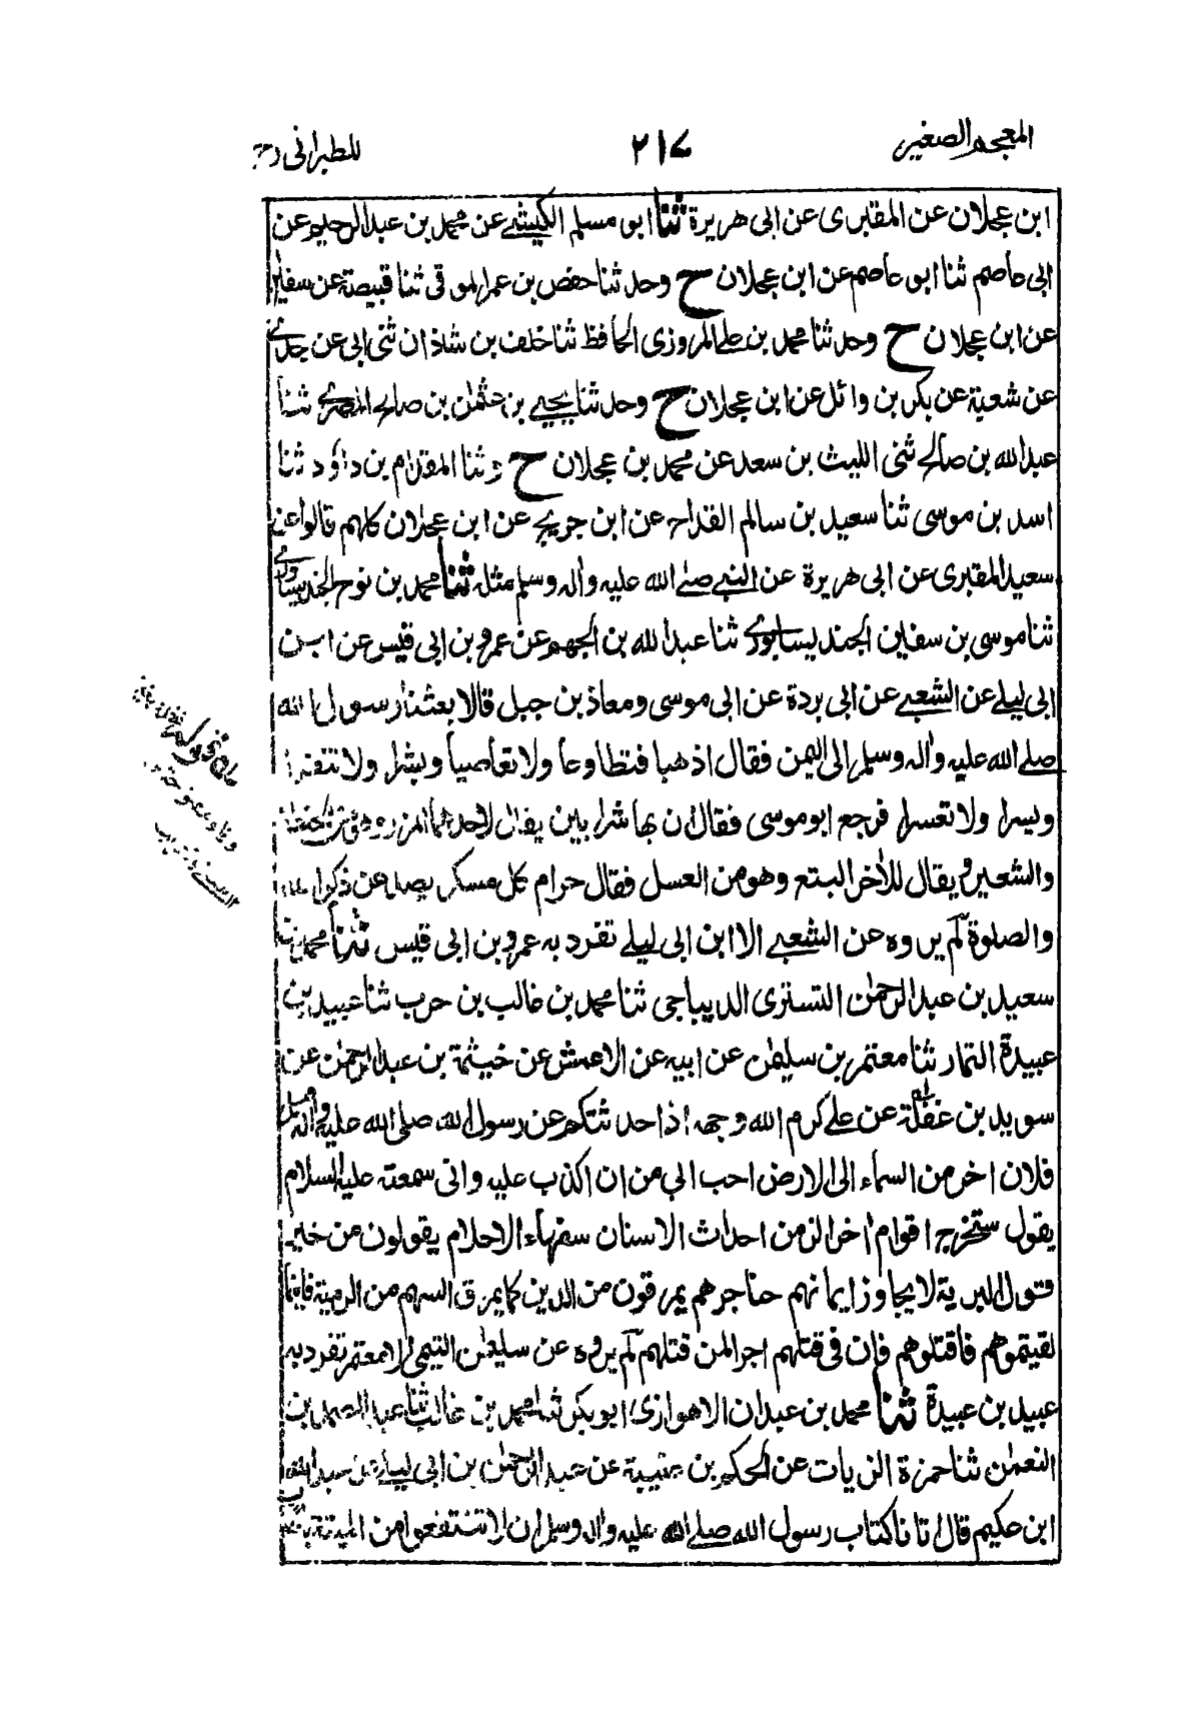 المعجم الصغير ٢١٧ للطبراني
ابن عجلان عن المقبرى عن ابى هريرة ثنا ابو مسلم الكشي عن محمد بن عبد الرحيم عن
ابى عاصم ثنا ابو عاصم عن ابن عجلان ح وحدثنا حفص بن عمر الموقى ثنا قبيصة عن سفيان
عن ابن عجلان ح وحدثنا محمد بن على المروزى الحافظ ثنا خلف بن شاذان ثنى ابى عن جدى
عن شعبة عن بكر بن وائل عن ابن عجلان ح وحدثنا يحيى بن عثمان بن صالح المصرى ثنا
عبد الله بن صالح ثنى الليث بن سعد عن محمد بن عجلان ح وثنا المقدام بن داؤد ثنا
اسد بن موسى ثنا سعيد بن سالم القداح عن ابن جريج عن ابن عجلان كلهم قالوا عن
سعيد المقبرى عن ابى هريرة عن النبى صلى الله عليه واله وسلم مثله ثنا محمد بن نوح الجنديسابورى
ثنا موسى بن سفين الجنديسابورى ثنا عبد الله بن الجهم عن عمرو بن ابى قيس عن ابن
ابى ليلى عن الشعبى عن ابى بردة عن ابى موسى ومعاذ بن جبل قالا بعثنا رسول الله
صلى الله عليه واله وسلم الى اليمن فقال اذهبا فتطاوعا ولا تعاصيا وبشرا ولا تنفرا
ويسرا ولا تعسرا فرجع ابو موسى فقال ان بها شرابين يقال لاحدهما المزر وهو من الحنطة
والشعير ويقال للاخر البتع وهو من العسل فقال حرام كل مسكر يصد عن ذكر الله
والصلوة لم يروه عن الشعبى الا ابن ابى ليلى تفرد به عمرو بن ابى قيس ثنا محمد بن
سعيد بن عبد الرحمن التسترى الديباجى ثنا محمد بن غالب بن حرب ثنا عبيد بن
عبيدة التمار ثنا معتمر بن سليمن عن ابيه عن الاعمش عن خيثمة بن عبد الرحمن عن
سويد بن غفلة عن على كرم الله وجهه اذا حدثتكم عن رسول الله صلى الله عليه واله وسلم
فلان اخر من السماء الى الارض احب الى من ان اكذب عليه وانى سمعته عليه السلام
يقول ستخرج اقوام اخر الزمن احداث الاسنان سفهاء الاحلام يقولون من خير
قول البرية لا يجاوز ايمانهم حناجرهم يمرقون من الدين كما يمرق السهم من الرمية فاينما
لقيتموهم فاقتلوهم فان فى قتلهم اجر المن قتلهم لم يروه عن سليمن التيمى الا معتمر تفرد به
عبيد بن عبيدة ثنا محمد بن عبدان الاهوازى ابو بكر ثنا محمد بن غالب ثنا عبد الصمد بن
النعمن ثنا حمزة الزيات عن الحكم بن عتيبة عن عبد الرحمن بن ابى ليلى عن عبد الله
ابن حكيم قال اتانا كتاب رسول الله صلى الله عليه واله وسلم ان لا تنتفعوا من الميتة